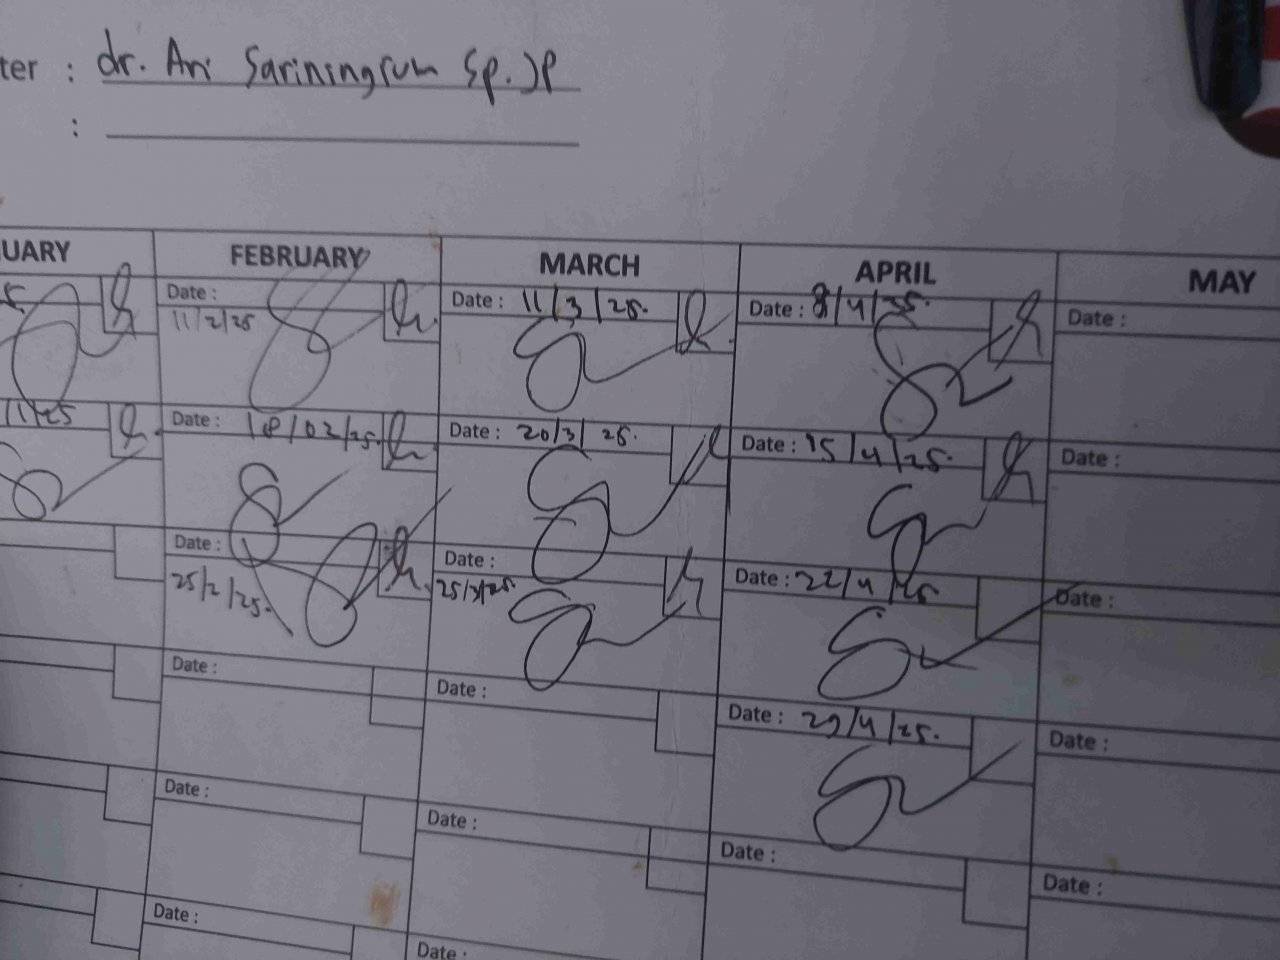 ter : dr. Ari Sariningrum Sp.JP
:
UARY FEBRUARY MARCH APRIL MAY
Date : 11/2/25 Date : 11/3/25. Date : 8/4/25. Date :
11/25 Date : 18/02/25. Date : 20/3/25. Date : 15/4/25. Date :
Date : 25/2/25. Date : 25/3/25. Date : 22/4/25. Date :
Date : Date : Date : 29/4/25. Date :
Date : Date : Date : Date :
Date : Date :